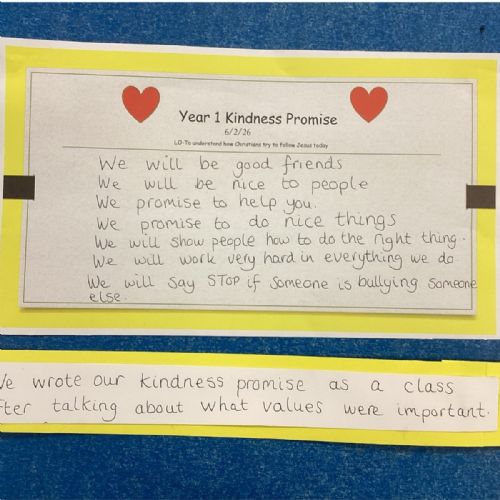 Year 1 Kindness Promise
6/2/26
LO-To understand how Christians try to follow Jesus today
We will be good friends
We will be nice to people
We promise to help you.
We promise to do nice things
We will show people how to do the right thing.
We will work very hard in everything we do
We will say STOP if someone is bullying someone
else.
We wrote our kindness promise as a class
after talking about what values were important.